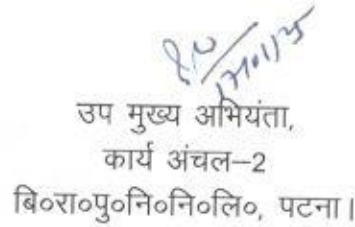 उप मुख्य अभियंता,
कार्य अंचल–2
बि०रा०पु०नि०नि०लि०, पटना।